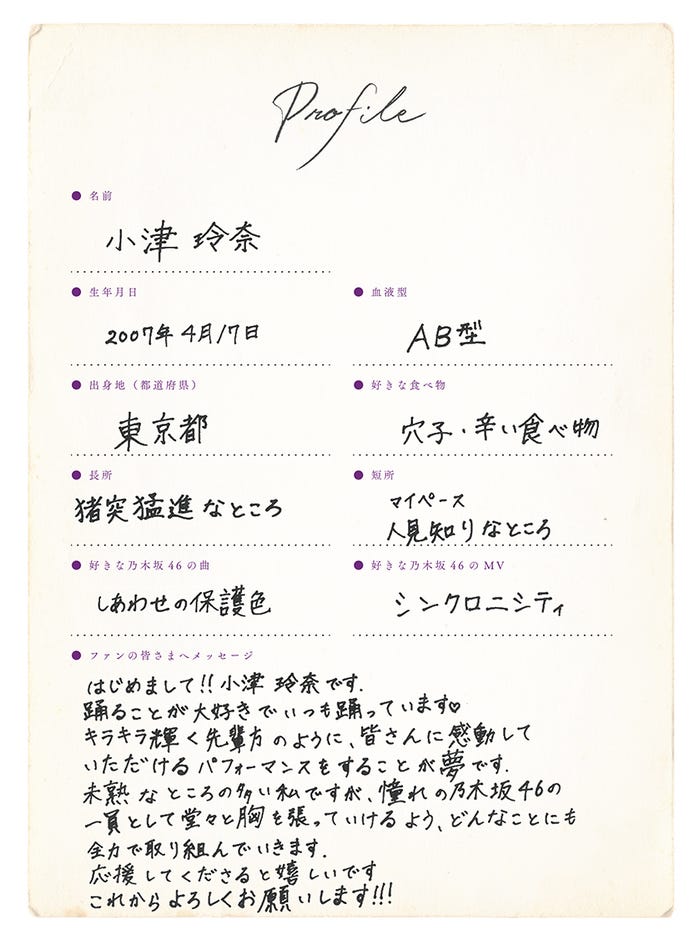 Profile
名前
小津 玲奈
生年月日
2007年 4月17日
血液型
AB型
出身地（都道府県）
東京都
好きな食べ物
穴子・辛い食べ物
長所
猪突猛進なところ
短所
マイペース
人見知りなところ
好きな乃木坂46の曲
しあわせの保護色
好きな乃木坂46のMV
シンクロニシティ
ファンの皆さまへメッセージ
はじめまして!! 小津 玲奈です.
踊ることが大好きでいつも踊っています♡
キラキラ輝く先輩方のように、皆さんに感動して
いただけるパフォーマンスをすることが夢です.
未熟なところの多い私ですが、憧れの乃木坂46の
一員として堂々と胸を張っていけるよう、どんなことにも
全力で取り組んでいきます.
応援してくださると嬉しいです
これからよろしくお願いします!!!